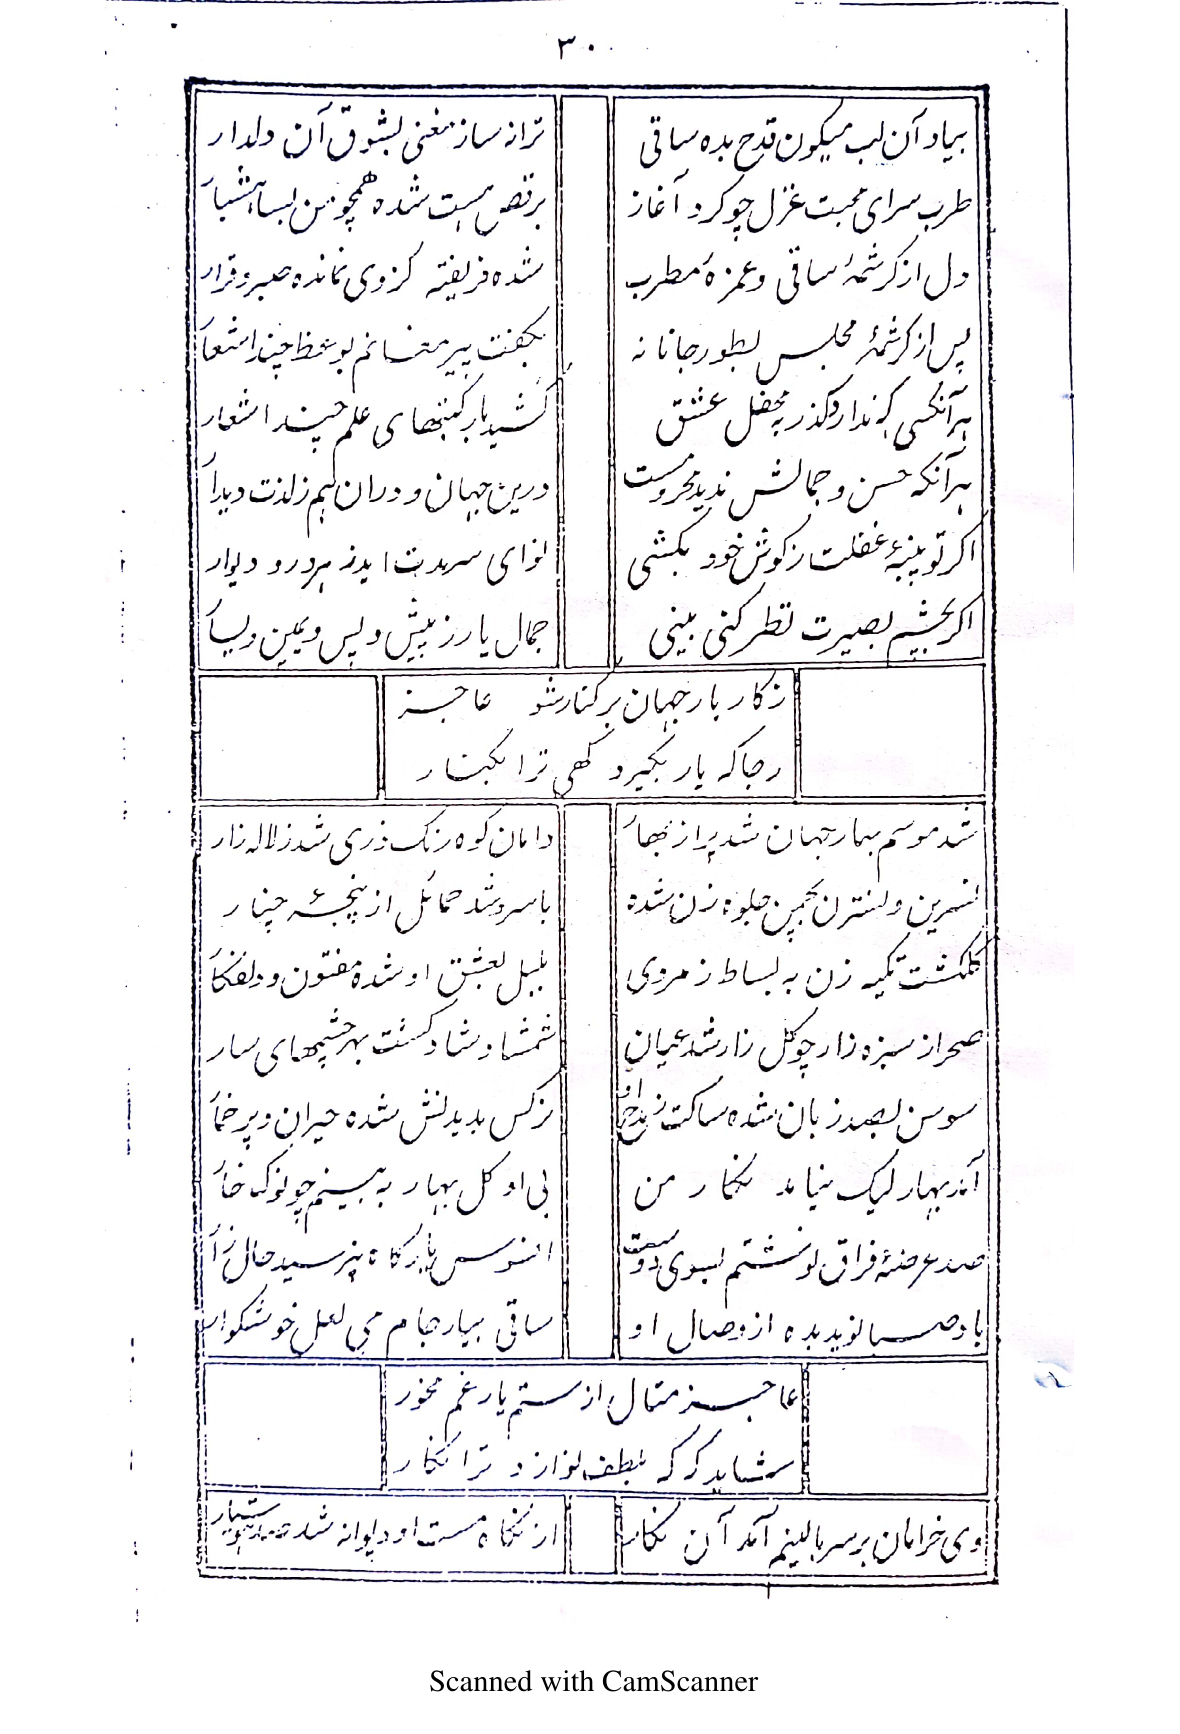 ۳۰
بیاد آن لب میکون قدح بده ساقی
ترانه ساز مغنی بشوق آن دلدار
طرب سرای محبت غزل چو کرد آغاز
برقص مست شده همچو من بسا هشیار
دل از کرشمۂ ساقی و غمزهٔ مطرب
شده فریفته کزوی نمانده صبر و قرار
پس از کرشمۂ مجلس بطور جانانه
بگفت پیر مغانم بوعظ چند اشعار
هر آنکسی که ندارد گذر به محفل عشق
کشید بار کتبهای علم چند اشعار
هر آنکه حسن و جمالش ندید محرومست
درین جهان و دران هم ز لذت دیدار
اکر تو پنبۂ غفلت ز کوش خود بکشی
نوای سرمدت اید ز هر در و دیوار
اکر بچشم بصیرت نظر کنی بینی
جمال یار ز پیش و پس و یمین و یسار
زکار بار جهان بر کنار شو عاجز
رجا که یار بگیرد گهی ترا بکنار
شد موسم بهار جهان شد پر از بهار
دامان کوه رنک زری شد ز لاله زار
نسرین و نسترن بچمن جلوه زن شده
با سرو شد حمائل از پنجۂ چنار
کلکشت تکیه زن به بساط زمروی
بلبل بعشق او شده مفتون و دلفکار
صحرا ز سبزه زار چو کل زار شد عیان
شمشاد شاد کشت بهر چشمهای سار
سوسن بصد زبان شده ساکت ز مدح او
نرکس بدیدنش شده حیران و پر خمار
آمد بهار لیک نیامد نکار من
بی او کل بهار به بینم چو نوک خار
صد عرضۂ فراق نوشتم بسوی دوست
افسوس یار کاه نپرسید حال زار
باد صبا نوید بده از وصال او
ساقی بیار جام می لعل خوشکوار
عاجز منال از ستم یار غم مخور
شاید کرکه بلطف نوازد ترا نکار
وی خرامان بر سر بالینم آمد آن نکار
از نکاه مست او دیوانه شد صد هوشیار
Scanned with CamScanner